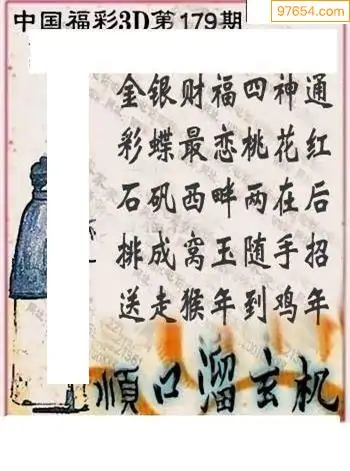 中国福彩3D第179期
97654.com
金银财福四神通
彩蝶最恋桃花红
石矶西畔两在后
排成窝玉随手招
送走猴年到鸡年
顺口溜玄机